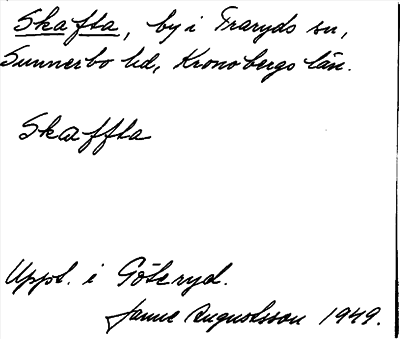 Skafta, by i Traryds sn,
Sunnerbo hd, Kronobergs län.
Skaffta
Uppt. i Göteryd.
Janne Augustsson 1949.